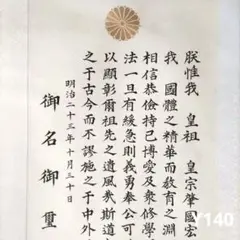 朕惟我 皇祖 皇宗肇國宏
我 國體之精華而敎育之淵
相信恭儉持己博愛及衆修學
法一旦有緩急則義勇奉公
以顯彰爾祖先之遺風矣斯道
之于古今而不謬施之于中外
明治二十三年十月三十日
御名御璽
Y140